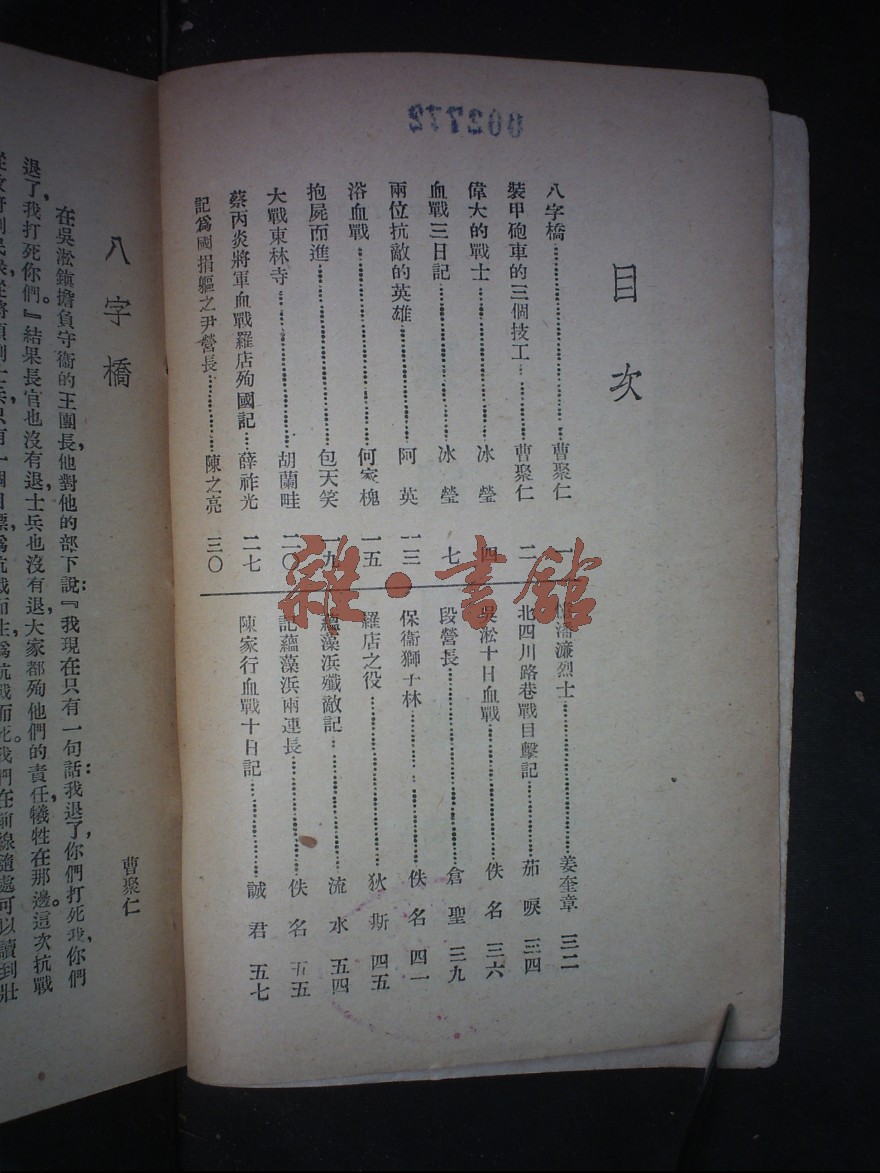 002772
目次
八字橋 曹聚仁 一
裝甲砲車的三個技工 曹聚仁 二
偉大的戰士 冰瑩 四
血戰三日記 冰瑩 七
兩位抗敵的英雄 阿英 一三
浴血戰 何家槐 一五
抱屍而進 包天笑 一九
大戰東林寺 胡蘭畦 二〇
蔡丙炎將軍血戰羅店殉國記 薛祚光 二七
記爲國捐軀之尹營長 陳之亮 三〇
潘濂烈士 姜奎章 三二
北四川路巷戰目擊記 茄唳 三四
吳淞十日血戰 佚名 三六
段營長 倉聖 三九
保衞獅子林 佚名 四一
羅店之役 狄斯 四五
蘊藻浜殲敵記 流水 五四
記蘊藻浜兩連長 佚名 五五
陳家行血戰十日記 誠君 五七
雜·書館
八字橋
曹聚仁
在吳淞鎭擔負守衞的王團長，他對他的部下說：『我現在只有一句話：我退了，你們打死我，你們
退了，我打死你們。』結果長官也沒有退，士兵也沒有退，大家都殉他們的責任，犧牲在那邊。這次抗戰
個目標，爲抗戰而生，爲抗戰而死。我們在前線隨處可以讀到壯